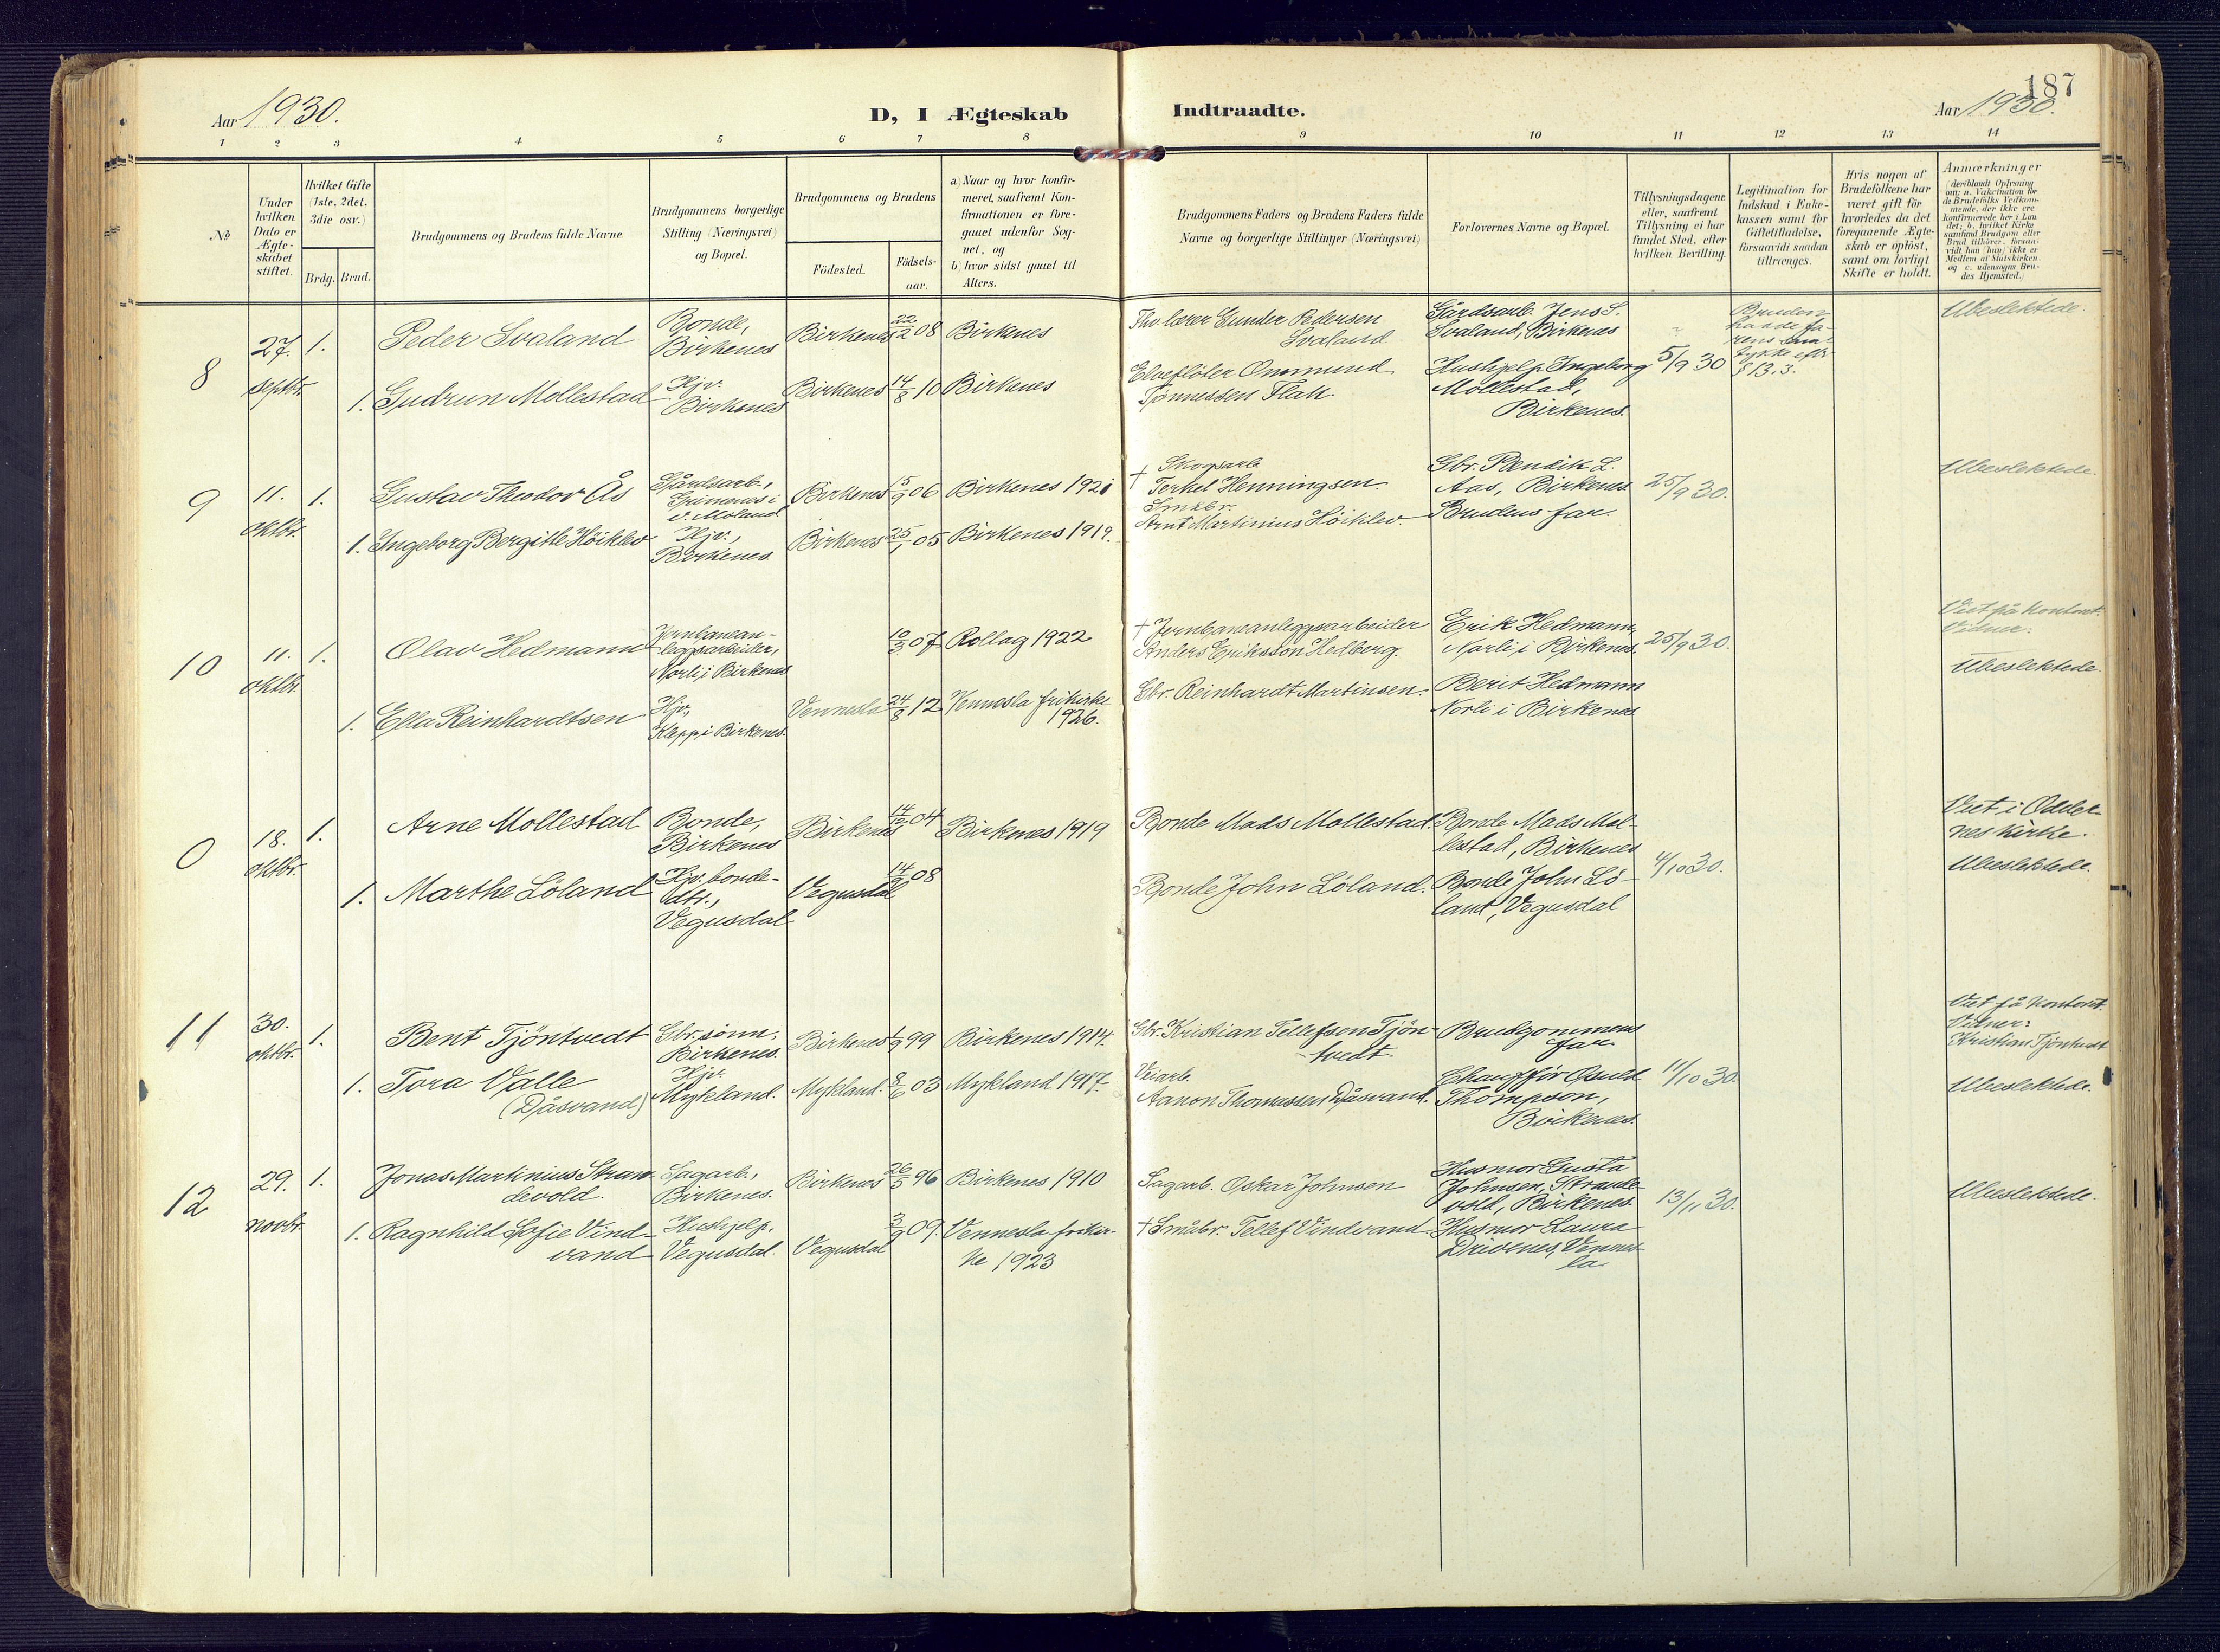 187
Aar 1930.
D, I Ægteskab Indtraadte.
Aar 1930.
1 2 3 4 5 6 7 8 9 10 11 12 13 14
No
Under
hvilken
Dato er
Ægte-
skabet
stiftet.
Hvilket Gifte
(1ste, 2det,
3die osv.)
Brdg. Brud.
Brudgommens og Brudens fulde Navne.
Brudgommens borgerlige
Stilling (Næringsvei)
og Bopæl.
Brudgommens og Brudens
Födested.
Födsels-
aar.
a) Naar og hvor konfir-
meret, saafremt Kon-
firmationen er fore-
gaaet udenfor Sog-
net, og
b) hvor sidst gaaet til
Alters.
Brudgommens Faders og Brudens Faders fulde
Navne og borgerlige Stillinger (Næringsvei)
Forlovernes Navne og Bopæl.
Tillysningsdagene
eller, saafremt
Tillysning ei har
fundet Sted, efter
hvilken Bevilling.
Legitimation for
Indskud i Enke-
kassen samt for
Giftetilladelse,
forsaavidt saadan
tiltrænges.
Hvis nogen af
Brudefolkene har
været gift för
hvorledes da det
foregaaende Ægte-
skab er oplöst,
samt om lovligt
Skifte er holdt.
Anmærkninger
(deriblandt Oplysning
om: a. Vakcination for
de Brudefolks Vedkom-
mende, der ikke ere
konfirmerede her i Lan
det; b. hvilket Kirke
samfund Brudgom eller
Brud tilhörer, forsaa-
vidt han (hun) ikke er
Medlem af Statskirken.
og c. udensogns Bru-
des Hjemsted.)
8
27.
septbr.
1.
Peder Svaland
Bonde,
Birkenes
Birkenes
22/2 08
Birkenes
Fhv. lærer Gunder Pedersen
Svaland
Gårdsarb. Jens S.
Svaland, Birkenes
5/9 30
Bruden
havde fa-
rens sam-
tykke efter
§ 13.3.
Ubeslektede.
1.
Gudrun Mollestad
Hjv.
Birkenes
Birkenes
14/8 10
Birkenes
Elvefløter Onomund
Tjønnessen Flak.
Hushjelp Ingeborg
Mollestad,
Birkenes.
9
11.
oktbr.
1.
Gustav Theodor Ås
Gårdsarb.,
Grimenes i
v. Moland
Birkenes
5/9 06
Birkenes 1921
† Skogsarb.
Terkel Henningsen
Gbr. Bendik L.
Aas, Birkenes
25/9 30.
Ubeslektede.
1.
Ingeborg Bergitte Höiklev
Hjv.,
Birkenes
Birkenes
25/1 05
Birkenes 1919.
Småbr.
Arnt Martinius Höiklev.
Brudens far.
10
11.
oktbr.
1.
Olav Hedmann
Jernbanean-
leggsarbeider,
Norli i Birkenes
10/3 07
Rollag 1922
† Jernbaneanleggsarbeider
Anders Eriksson Hedberg.
Erik Hedmann,
Norli i Birkenes.
25/9 30.
Viet på kontoret.
Vidner:
Ubeslektede.
1.
Ella Reinhardtsen
Hjv.,
Klepp i Birkenes.
Vennesla
24/8 12
Vennesla frikirke
1926.
Gbr. Reinhardt Martinsen.
Berit Hedmann
Norli i Birkenes
0
18.
oktbr.
1.
Arne Mollestad
Bonde,
Birkenes
Birkenes
14/12 04
Birkenes 1919
Bonde Mads Mollestad.
Bonde Mads Mol-
lestad, Birkenes
4/10 30.
Viet i Odder-
nes kirke.
Ubeslektede.
1.
Marthe Löland
Hjv. bonde-
dtr.,
Vegusdal
Vegusdal
14/9 08
Bonde John Löland.
Bonde John Lö-
land, Vegusdal
11
30.
oktbr.
1.
Bent Tjöntvedt
Gbr. sønn,
Birkenes.
Birkenes
1/9 99
Birkenes 1914.
Gbr. Kristian Tellefsen Tjön-
tvedt.
Brudgommens
far.
11/10 30.
Viet på kontoret.
Vidner:
Kristian Tjöntvedt
Ubeslektede.
1.
Tora Valle
(Djåsvand)
Hjv.
Mykland.
Mykland.
8/6 03
Mykland 1917.
Veiarb.
Aanon Thomassen Djåsvand.
Chauffør Osuld
Thompson,
Birkenes.
12
29.
novbr.
1.
Jonas Martinius Stran-
devold.
Sagarb.,
Birkenes.
Birkenes
26/5 96
Birkenes 1910
Sagarb. Oskar Johnsen
Husmor Gusta
Johnsen, Strande
vold, Birkenes.
13/11 30.
Ubeslektede.
1.
Ragnhild Sofie Vind-
vand
Hushjelp,
Vegusdal.
Vegusdal
3/9 09.
Vennesla frikir-
ke 1923
† Småbr. Tellef Vindvand
Husmor Laura
Drivenes, Vennes-
la.